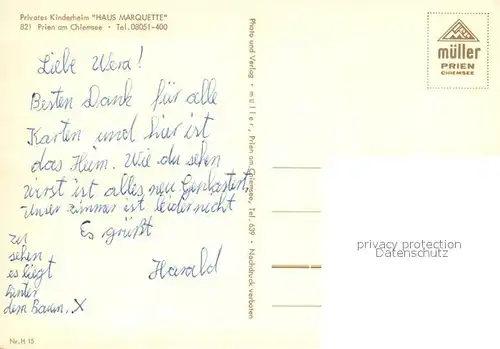 Privates Kinderheim "HAUS MARQUETTE"
821 Prien am Chiemsee • Tel. 08051-400
Liebe Wera!
Besten Dank für alle
Karten und hier ist
das Heim. Wie du sehen
wirst ist alles neu
unser zimmer ist leider nicht
Es grüßt
Harald
zu
sehen
es liegt
hinter
dem Baum. X
Nr. H 15
Photo und Verlag • müller, Prien am Chiemsee, Tel. 639 • Nachdruck verboten
müller
PRIEN
CHIEMSEE
privacy protection
Datenschutz